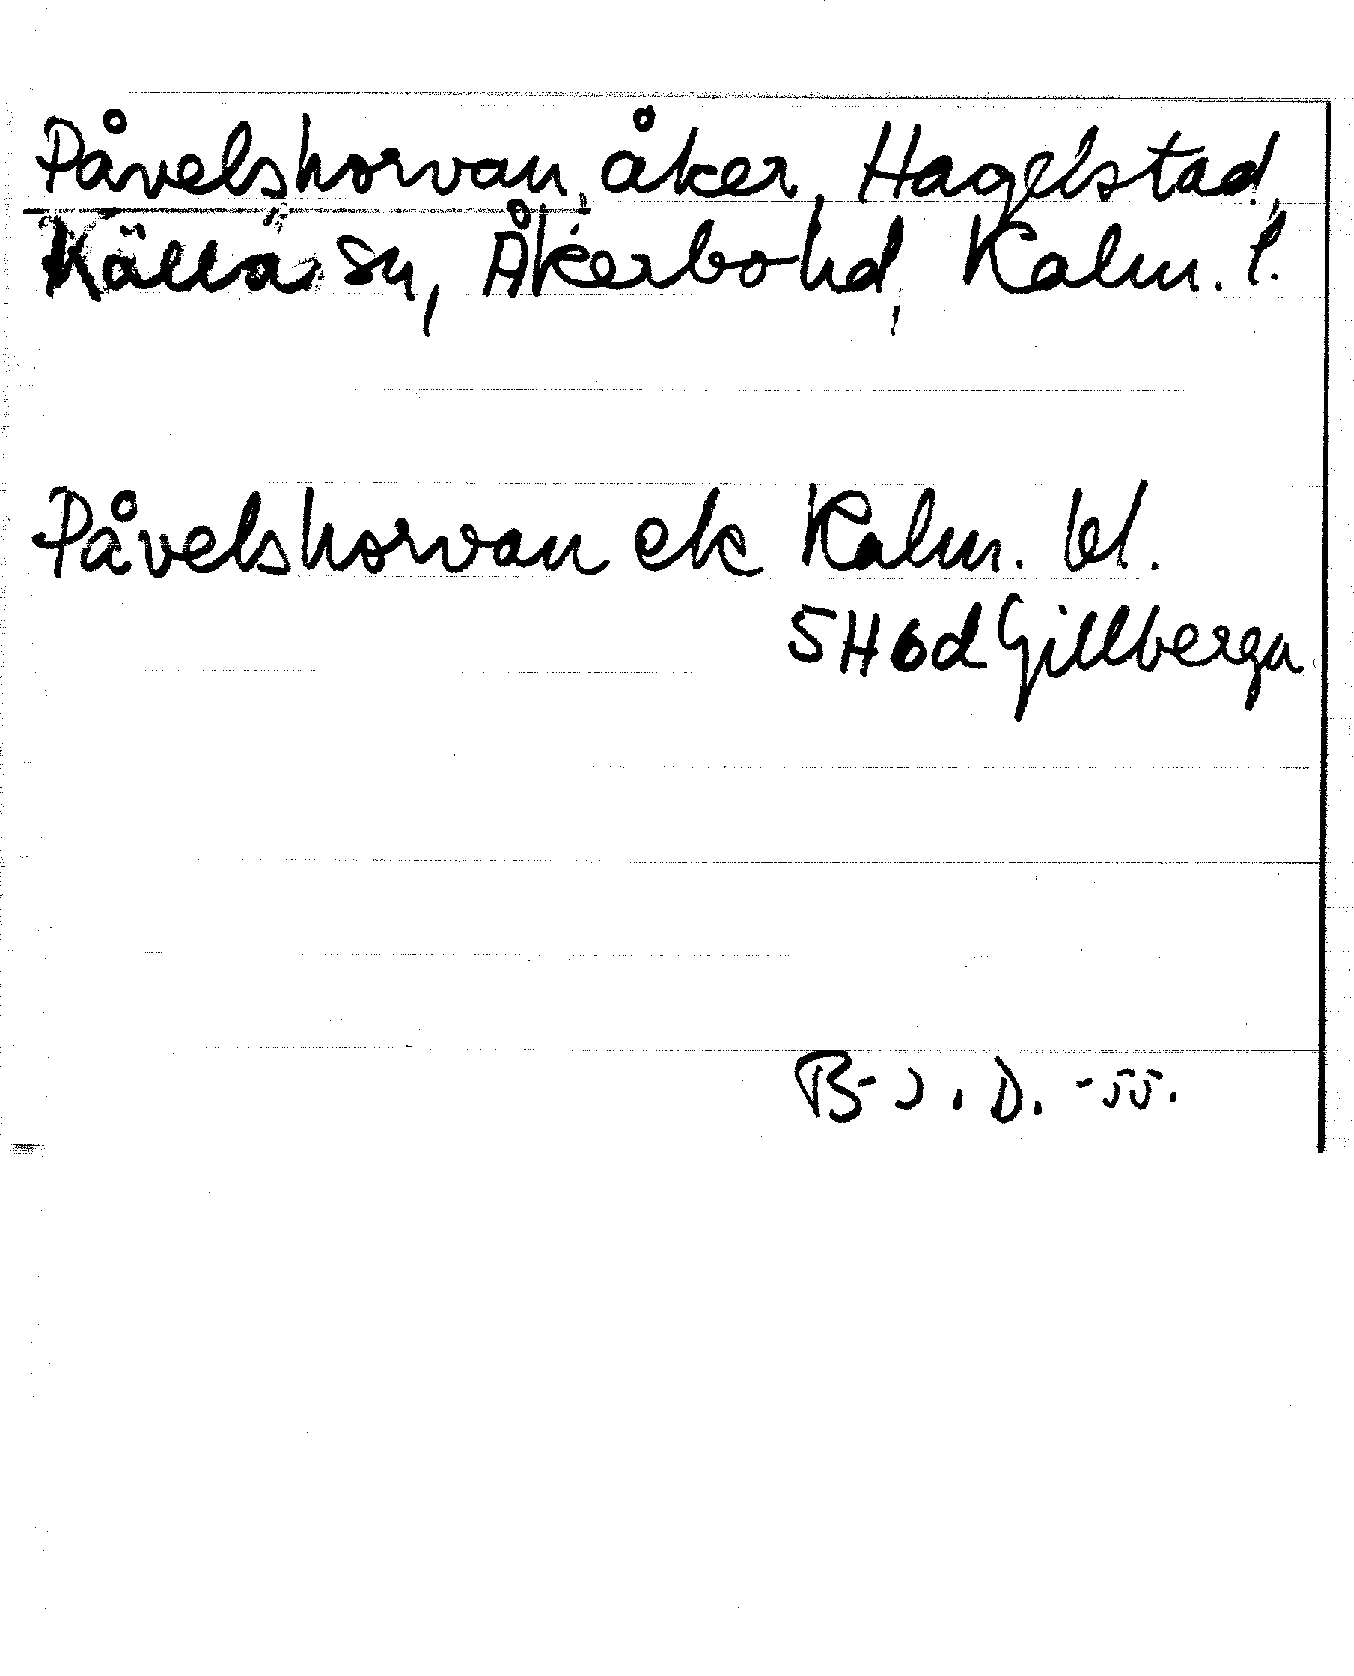 Påvelshorvan, åker, Hagelstad,
Källa sn, Åkerbo hd, Kalm. l.
Påvelshorvan ek Kalm. bl.
5H6d Gillberga
B-J. D. -55.